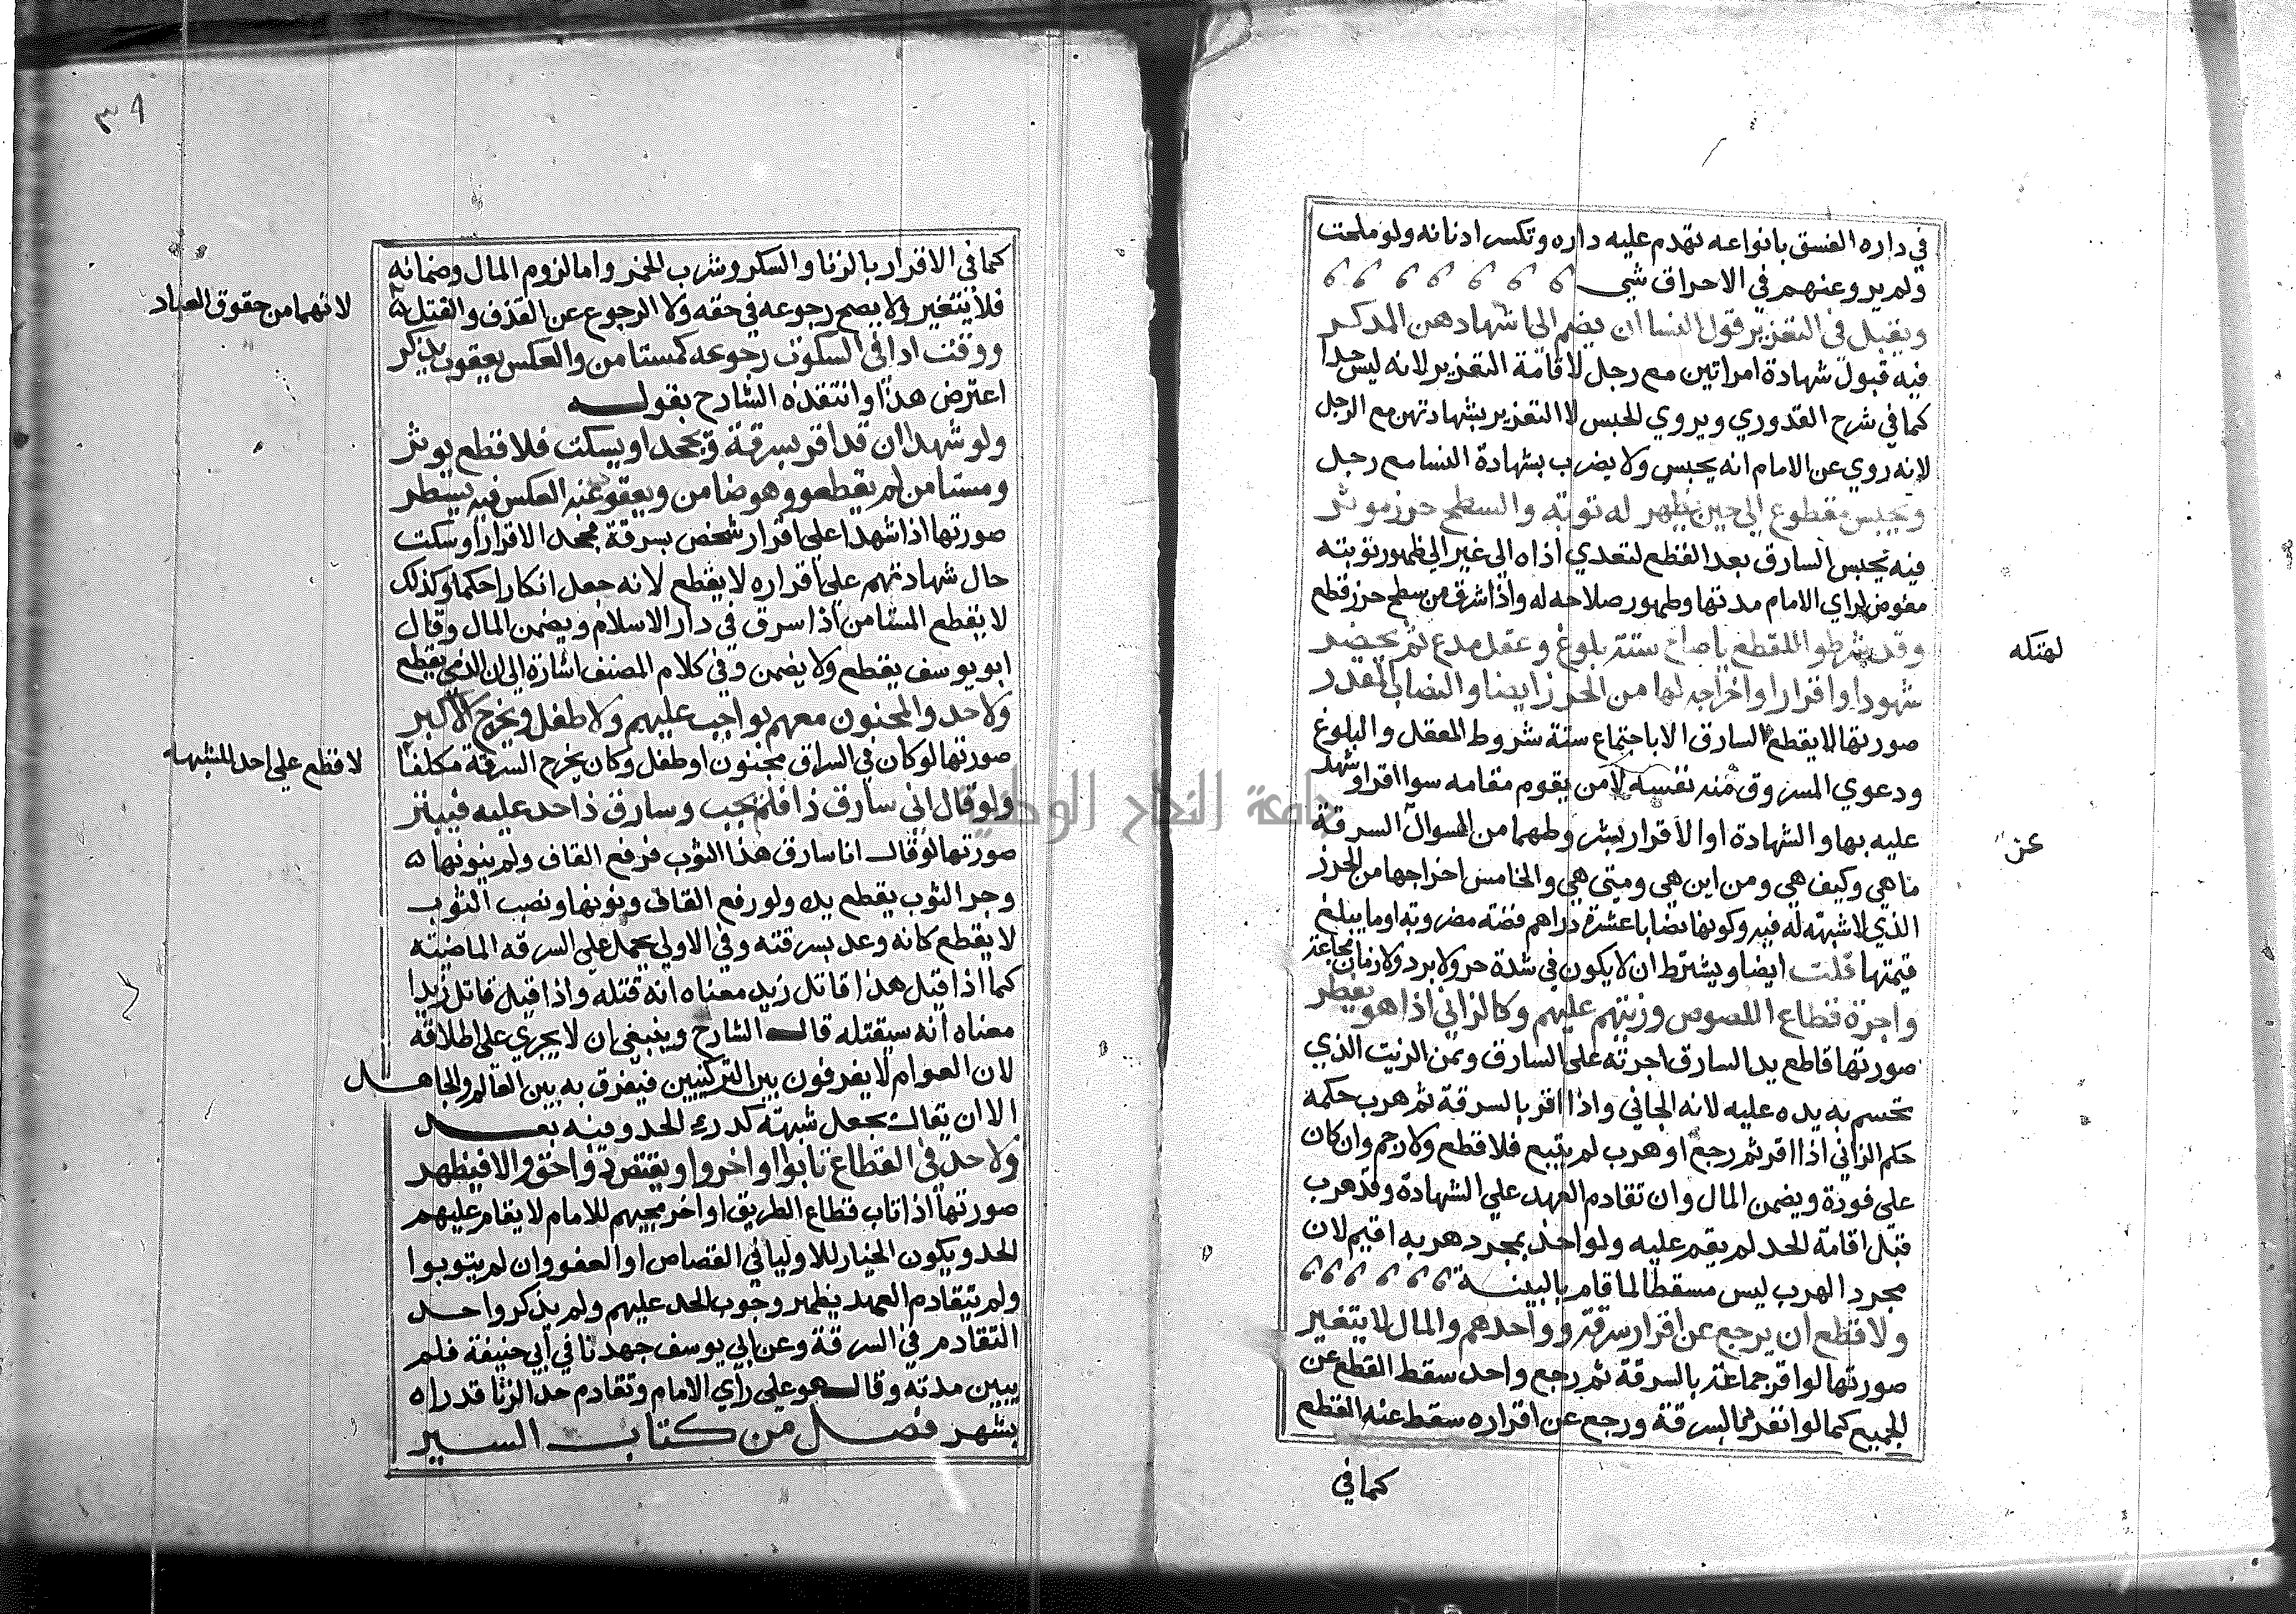 في داره الفسق بانواعه تهدم عليه داره وتكسر ادنانه ولو ملحت
ولم يروعنهم في الاحراق شي
ويقبل في التعزير قول النسا ان يضم الى اشهادهن المذكر
فيه قبول شهادة امراتين مع رجل لاقامة التعزير لانه ليس حدا
كما في شرح القدوري ويروي الحبس لا التعزير بشهادتهن مع الرجل
لانه روي عن الامام انه يحبس ولا يضرب بشهادة النسا مع رجل
ويحبس مقطوع الى حين يظهر له توبة والسطح حرز موثر
فيه يحبس السارق بعد القطع لتعدي اذاه الى غير الى ظهور توبته
مفوض لراي الامام مدتها وظهور صلاحه له واذا سرق من سطح حرز قطع
لهتكه
وقد شرطوا للقطع ياصاح ستة بلوغ وعقل مدع ثم يحضر
شهودا واقرارا واخراجه لها من الحرز ايضا والنصاب المقدر
صورتها لا يقطع السارق الا باجتماع ستة شروط العقل والبلوغ
ودعوي المسروق منه نفسه لا من يقوم مقامه سوا اقر او شهد
عليه بها والشهادة او الاقرار بشروطهما من السوال السرقة
عن
ما هي وكيف هي ومن اين هي ومتى هي والخامس اخراجها من الحرز
الذي لا شبهة له فيه وكونها نصابا عشرة دراهم فضة مضروبة او ما يبلغ
قيمتها قلت ايضا ويشترط ان لا يكون في شدة حر ولا برد ولا زمان مجاعة
واجرة قطاع اللصوص وزيتهم عليهم وكالزاني اذا هو يفطر
صورتها قاطع يد السارق اجرته على السارق وثمن الزيت الذي
تحسم به يده عليه لانه الجاني واذا اقر بالسرقة ثم هرب حكمه
حكم الزاني اذا اقر ثم رجع او هرب لم يتبع فلا قطع ولا رجم وان كان
على فورة ويضمن المال وان تقادم العهد علي الشهادة وقد هرب
قبل اقامة الحد لم يقم عليه ولو اخذ بمجرد هربه اقيم لان
مجرد الهرب ليس مسقطا لما قام بالبينة
ولا قطع ان يرجع عن اقرار سرقة وواحدهم والمال لا يتغير
صورتها لو اقر جماعة بالسرقة ثم رجع واحد سقط القطع عن
الجميع كما لو انفرد بالسرقة ورجع عن اقراره سقط عنه القطع
كما في
٣٩
كما في الاقرار بالزنا والسكر وشرب الخمر واما لزوم المال وضمانه
فلا يتغير ولا يصح رجوعه في حقه ولا الرجوع عن القذف والقتل
لانهما من حقوق العباد
ووقت ادا في السكوت رجوعه كمستامن والعكس يعقوب يذكر
اعترض هذا وانتقذه الشارح بقوله
ولو شهدا ان قد اقر بسرقة ويجحد او يسكت فلا قطع يوثر
ومستامن لم يقطعوا وهو ضامن ويعقوب عنه العكس فيه يسطر
صورتها اذا شهدا على اقرار شخص بسرقة فجحد الاقرار او سكت
حال شهادتهم على اقراره لا يقطع لانه جعل انكارا حكما وكذلك
لا يقطع المستامن اذا سرق في دار الاسلام ويضمن المال وقال
ابو يوسف يقطع ولا يضمن وفي كلام المصنف اشارة الى ان الذمي يقطع
ولا حد والمجنون معهم بواجب عليهم ولا طفل ويخرج الاكبر
صورتها لو كان في السراق مجنون او طفل وكان يخرج السرقة مكلفا
لا قطع على احد للشبهة
ولو قال اني سارق ذا فلم يجب وسارق ذا حد عليه فيبتر
صورتها لو قال انا سارق هذا الثوب فرفع القاف ولم ينونها
وجر الثوب يقطع يده ولو رفع القاف ونونها ونصب الثوب
لا يقطع كانه وعد بسرقته وفي الاولي يحمل على السرقه الماضية
كما اذا قيل هذا قاتل زيد معناه انه قتله واذا قيل قاتل زيدا
معناه انه سيقتله قال الشارح وينبغي ان لا يجري على اطلاقه
لان العوام لا يفرقون بين التركيبين فيفرق به بين العالم والجاهل
الا ان يقال يجعل شبهة كدرء الحد وفيه بعد
ولا حد في القطاع تابوا او اخروا ويقتص ذو احق والا فيظهر
صورتها اذا تاب قطاع الطريق او اخر مجيهم للامام لا يقام عليهم
الحد ويكون الخيار للاوليا في القصاص او العفو وان لم يتوبوا
ولم يتقادم العهد يظهر وجوب الحد عليهم ولم يذكروا حد
التقادم في السرقة وعن ابي يوسف جهدنا في ابي حنيفة فلم
يبين مدته وقال هو على راي الامام وتقادم حد الزنا قدراه
بشهر فصل من كتاب السير
جامعة النجاح الوطنية